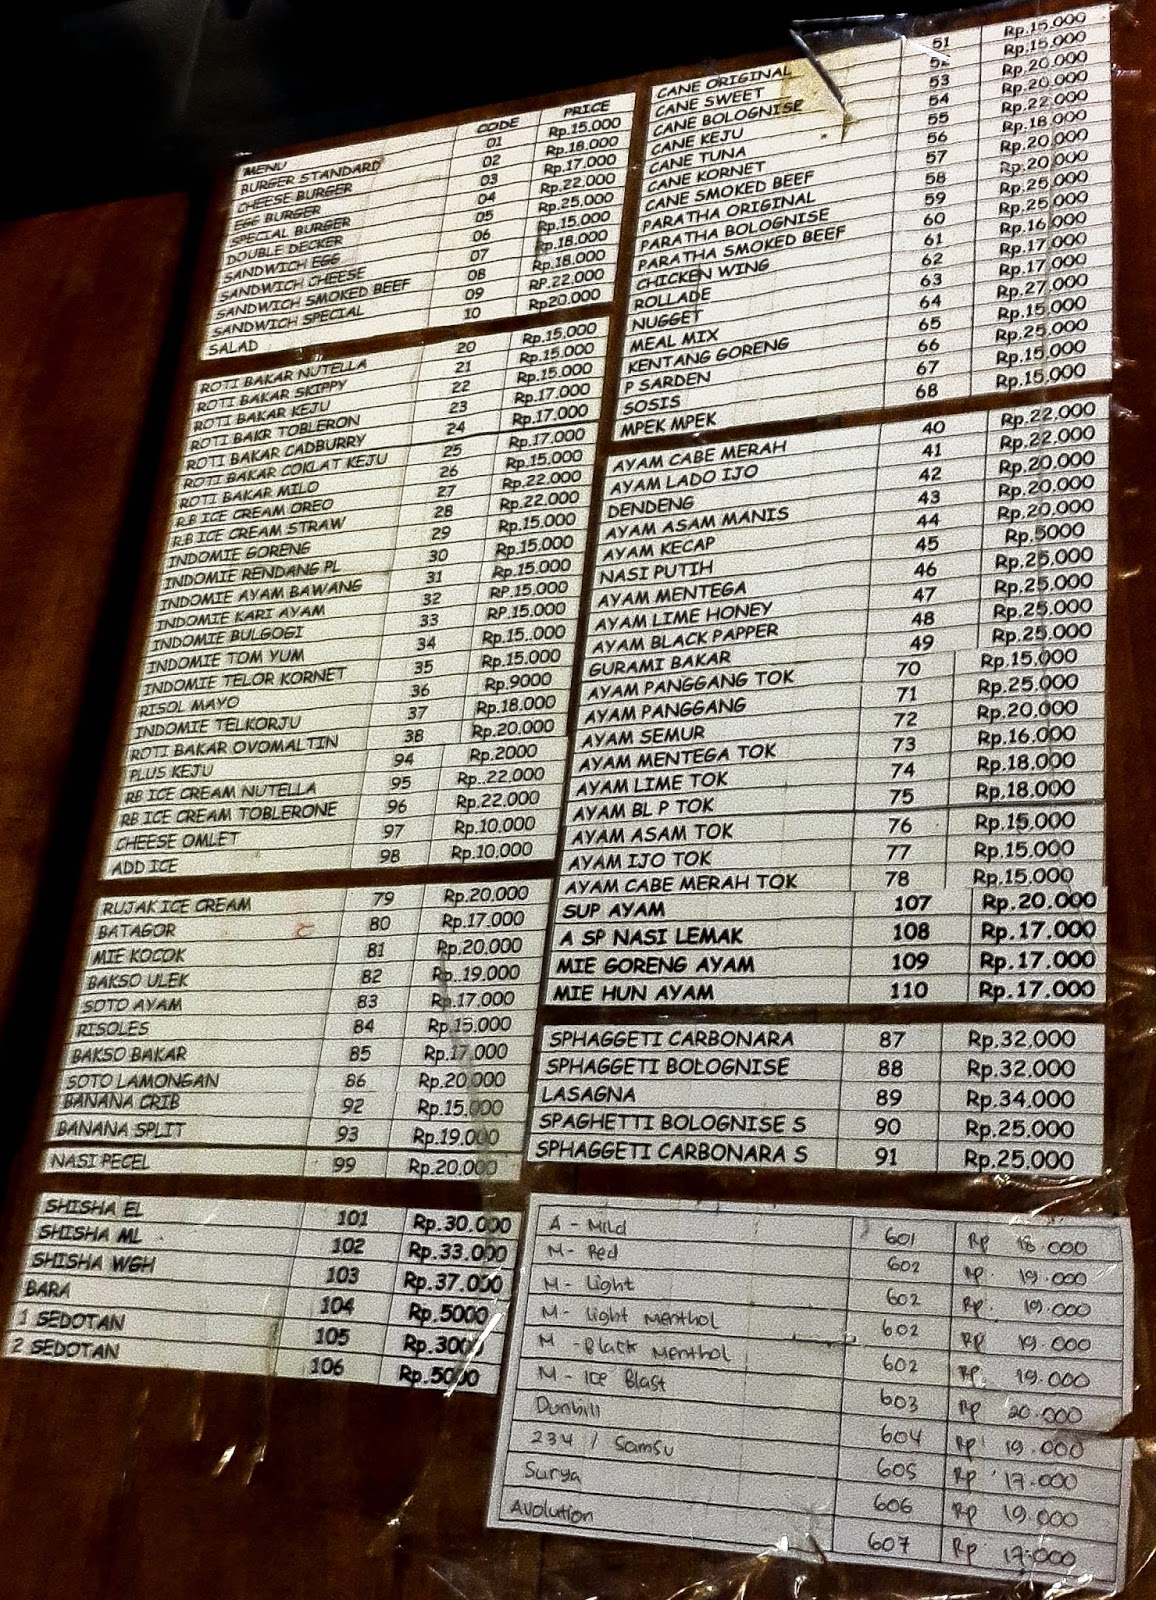 MENU CODE PRICE
BURGER STANDARD 01 Rp.15.000
CHEESE BURGER 02 Rp.18.000
EGG BURGER 03 Rp.17.000
SPECIAL BURGER 04 Rp.22.000
DOUBLE DECKER 05 Rp.25.000
SANDWICH EGG 06 Rp.15.000
SANDWICH CHEESE 07 Rp.18.000
SANDWICH SMOKED BEEF 08 Rp.18.000
SANDWICH SPECIAL 09 RP.22.000
SALAD 10 Rp20.000
ROTI BAKAR NUTELLA 20 Rp.15.000
ROTI BAKAR SKIPPY 21 Rp.15.000
ROTI BAKAR KEJU 22 Rp.15.000
ROTI BAKR TOBLERON 23 Rp.17.000
ROTI BAKAR CADBURRY 24 Rp.17.000
ROTI BAKAR COKLAT KEJU 25 Rp.17.000
ROTI BAKAR MILO 26 Rp.15.000
R.B ICE CREAM OREO 27 Rp.22.000
R.B ICE CREAM STRAW 28 Rp.22.000
INDOMIE GORENG 29 Rp.15.000
INDOMIE RENDANG PL 30 Rp.15.000
INDOMIE AYAM BAWANG 31 Rp.15.000
INDOMIE KARI AYAM 32 RP.15.000
INDOMIE BULGOGI 33 RP.15.000
INDOMIE TOM YUM 34 Rp.15..000
INDOMIE TELOR KORNET 35 Rp.15.000
RISOL MAYO 36 Rp.9000
INDOMIE TELKORJU 37 Rp.18.000
ROTI BAKAR OVOMALTIN 38 Rp.20.000
PLUS KEJU 94 Rp.2000
RB ICE CREAM NUTELLA 95 Rp..22.000
RB ICE CREAM TOBLERONE 96 Rp.22.000
CHEESE OMLET 97 Rp.10.000
ADD ICE 98 Rp.10.000
RUJAK ICE CREAM 79 Rp.20.000
BATAGOR 80 Rp.17.000
MIE KOCOK 81 Rp.20.000
BAKSO ULEK 82 Rp..19.000
SOTO AYAM 83 Rp.17.000
RISOLES 84 Rp.15.000
BAKSO BAKAR 85 Rp.17.000
SOTO LAMONGAN 86 Rp.20.000
BANANA CRIB 92 Rp.15.000
BANANA SPLIT 93 Rp.19.000
NASI PECEL 99 Rp.20.000
SHISHA EL 101 Rp.30.000
SHISHA ML 102 Rp.33.000
SHISHA WGH 103 Rp.37.000
BARA 104 Rp.5000
1 SEDOTAN 105 Rp.3000
2 SEDOTAN 106 Rp.5000
CANE ORIGINAL 51 Rp.15.000
CANE SWEET 52 Rp.15.000
CANE BOLOGNISE 53 Rp.20.000
CANE KEJU 54 Rp.20.000
CANE TUNA 55 Rp.22.000
CANE KORNET 56 Rp.18.000
CANE SMOKED BEEF 57 Rp.20.000
PARATHA ORIGINAL 58 Rp.20.000
PARATHA BOLOGNISE 59 Rp.25.000
PARATHA SMOKED BEEF 60 Rp.25.000
CHICKEN WING 61 Rp.16.000
ROLLADE 62 Rp.17.000
NUGGET 63 Rp.17.000
MEAL MIX 64 Rp.27.000
KENTANG GORENG 65 Rp.15.000
P SARDEN 66 Rp.25.000
SOSIS 67 Rp.15.000
MPEK MPEK 68 Rp.15.000
AYAM CABE MERAH 40 Rp.22.000
AYAM LADO IJO 41 Rp.22.000
DENDENG 42 Rp.20.000
AYAM ASAM MANIS 43 Rp.20.000
AYAM KECAP 44 Rp.20.000
NASI PUTIH 45 Rp.5000
AYAM MENTEGA 46 Rp.25.000
AYAM LIME HONEY 47 Rp.25.000
AYAM BLACK PAPPER 48 Rp.25.000
GURAMI BAKAR 49 Rp.25.000
AYAM PANGGANG TOK 70 Rp.15.000
AYAM PANGGANG 71 Rp.25.000
AYAM SEMUR 72 Rp.20.000
AYAM MENTEGA TOK 73 Rp.16.000
AYAM LIME TOK 74 Rp.18.000
AYAM BL P TOK 75 Rp.18.000
AYAM ASAM TOK 76 Rp.15.000
AYAM IJO TOK 77 Rp.15.000
AYAM CABE MERAH TOK 78 Rp.15.000
SUP AYAM 107 Rp.20.000
A SP NASI LEMAK 108 Rp.17.000
MIE GORENG AYAM 109 Rp.17.000
MIE HUN AYAM 110 Rp.17.000
SPHAGGETI CARBONARA 87 Rp.32.000
SPHAGGETI BOLOGNISE 88 Rp.32.000
LASAGNA 89 Rp.34.000
SPAGHETTI BOLOGNISE S 90 Rp.25.000
SPHAGGETI CARBONARA S 91 Rp.25.000
A - Mild 601 Rp 18.000
M - Red 602 Rp. 19.000
M - Light 602 Rp. 19.000
M - Light Menthol 602 Rp 19.000
M - Black Menthol 602 Rp. 19.000
M - Ice Blast 603 Rp 20.000
Dunhill 604 Rp 19.000
234 / Samsu 605 Rp 17.000
Surya 606 Rp 19.000
Avolution 607 Rp 17.000